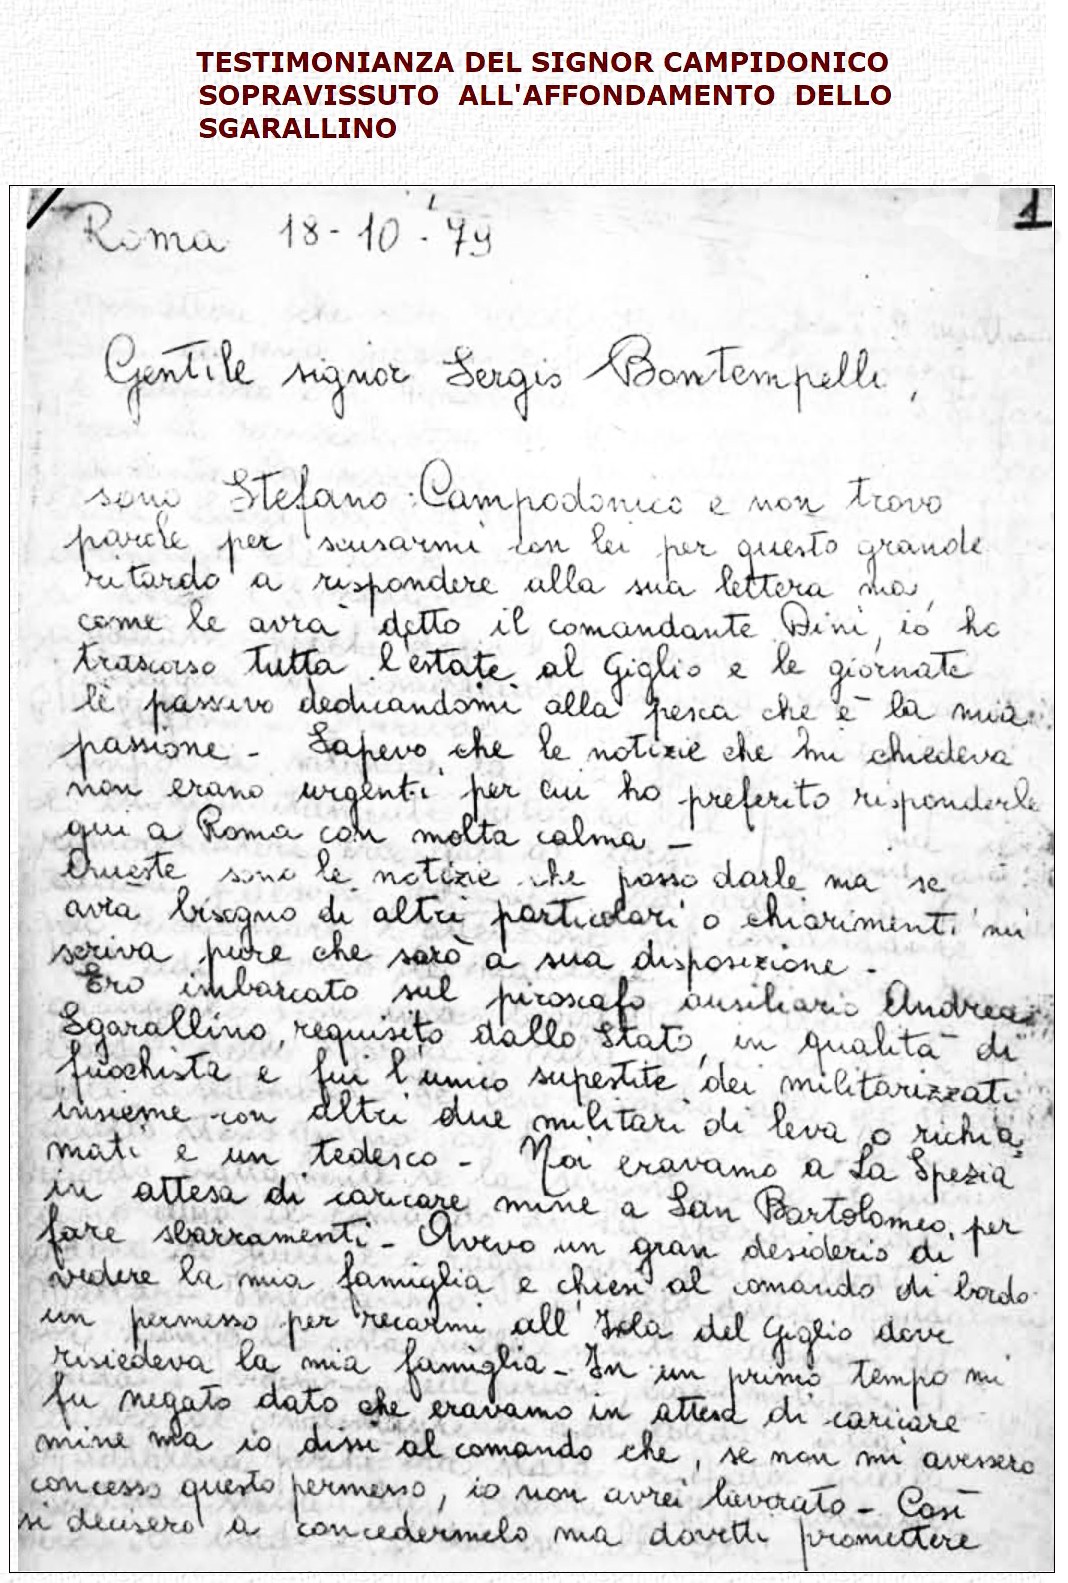 TESTIMONIANZA DEL SIGNOR CAMPIDONICO
SOPRAVISSUTO ALL'AFFONDAMENTO DELLO
SGARALLINO
1
Roma 18-10-'79
Gentile signor Sergio Bontempelli,
sono Stefano Campodonico e non trovo
parole per scusarmi con lei per questo grande
ritardo a rispondere alla sua lettera ma,
come le avrà detto il comandante Dini, io ho
trascorso tutta l'estate al Giglio e le giornate
le passavo dedicandomi alla pesca che è la mia
passione - Sapevo che le notizie che mi chiedeva
non erano urgenti per cui ho preferito risponderle
qui a Roma con molta calma -
Queste sono le notizie che posso darle ma se
avrà bisogno di altri particolari o chiarimenti mi
scriva pure che sarò a sua disposizione -
Ero imbarcato sul piroscafo ausiliario Andrea
Sgarallino, requisito dallo Stato, in qualità di
fuochista e fui l'unico supestite dei militarizzati
insieme con altri due militari di leva o richia
mati e un tedesco - Noi eravamo a La Spezia
in attesa di caricare mine a San Bartolomeo per
fare sbarramenti - Avevo un gran desiderio di
vedere la mia famiglia e chiesi al comando di bordo
un permesso per recarmi all'Isola del Giglio dove
risiedeva la mia famiglia - In un primo tempo mi
fu negato dato che eravamo in attesa di caricare
mine ma io dissi al comando che, se non mi avessero
concesso questo permesso, io non avrei lavorato - Così
si decisero a concedermelo ma dovetti promettere